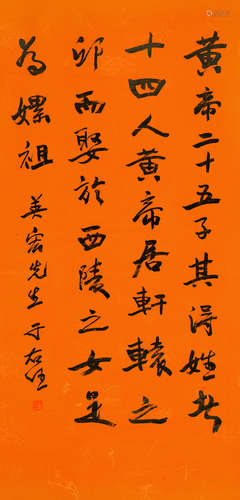 黃帝二十五子其得姓者
十四人黃帝居軒轅之
邱而娶於西陵之女是
為嫘祖
英宏先生 于右任